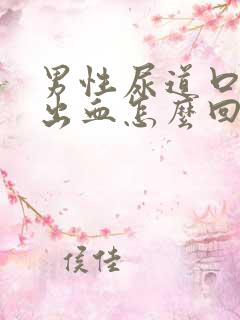 男性尿道口
出血怎麼回
侯佳